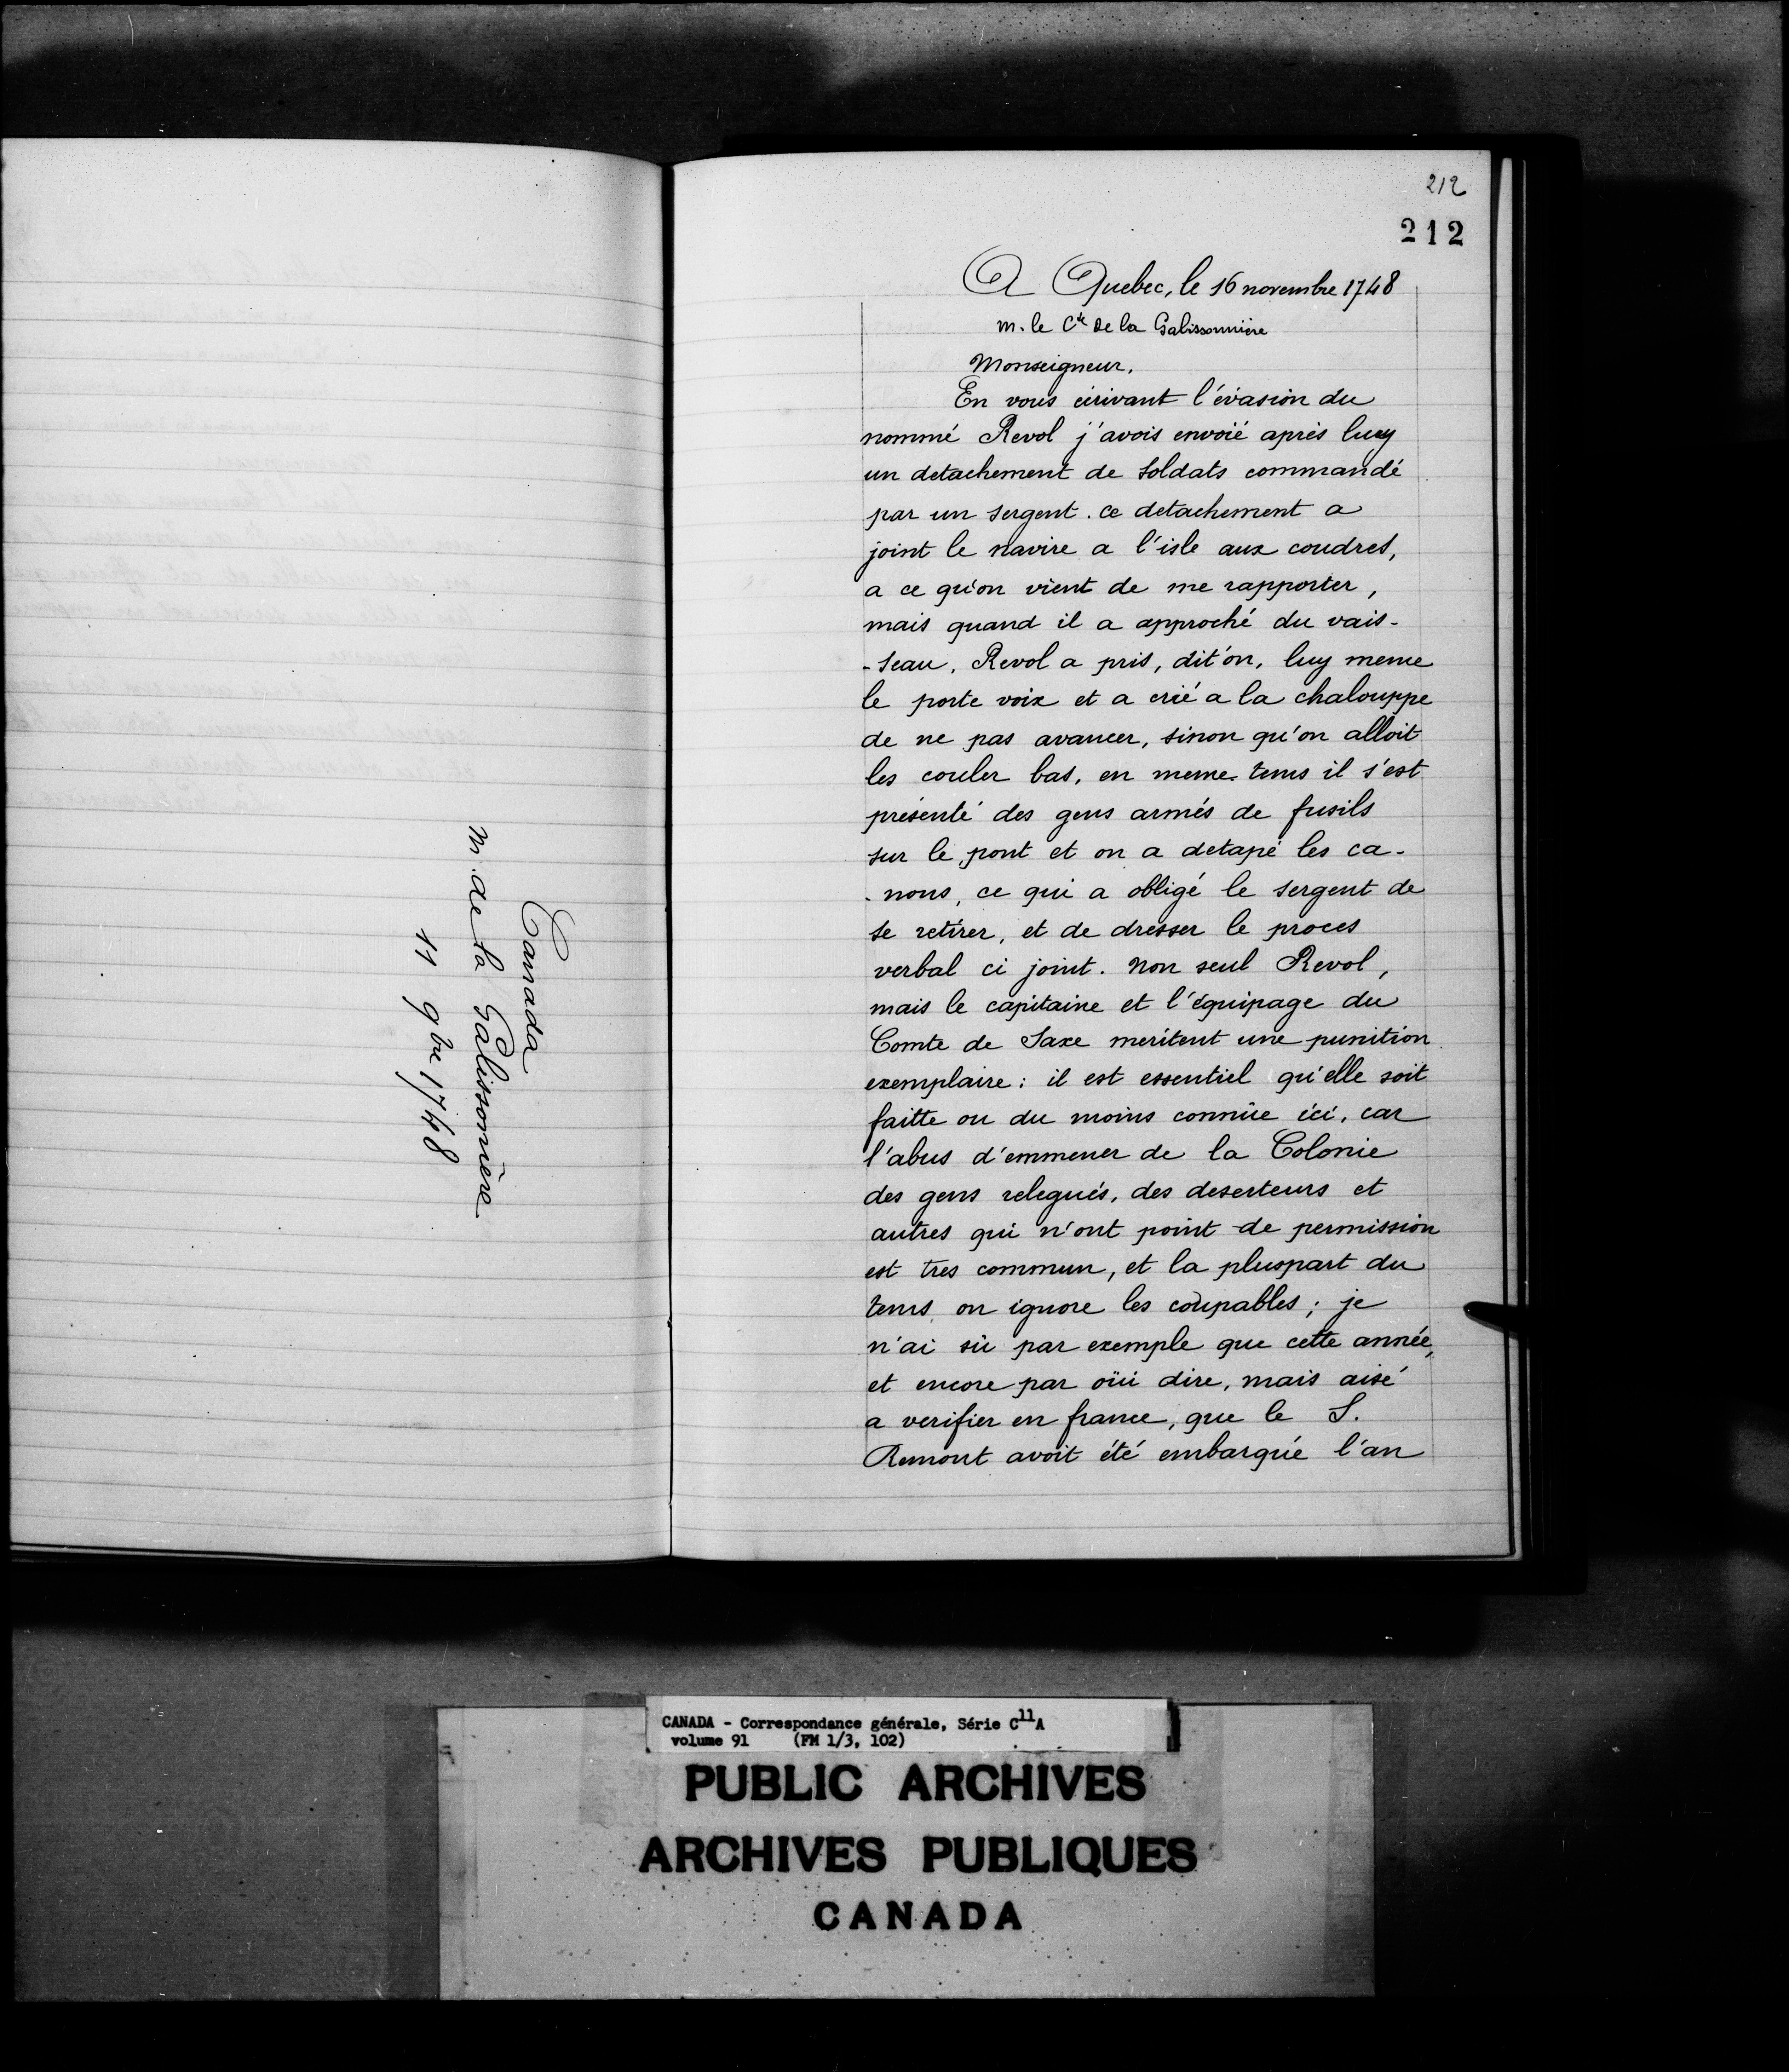 Canada
m. de la Galissonière
11 9bre 1748
212
212
A Quebec, le 16 novembre 1748
m. le Cte de la Galissonnière
Monseigneur,
En vous écrivant l'évasion du
nommé Revol j'avois envoié après luy
un detachement de soldats commandé
par un sergent. ce detachement a
joint le navire a l'isle aux coudres,
a ce qu'on vient de me rapporter,
mais quand il a approché du vais-
-seau, Revol a pris, dit'on, luy meme
le porte voix et a crié a la chalouppe
de ne pas avancer, sinon qu'on alloit
les couler bas, en meme tems il s'est
présenté des gens armés de fusils
sur le pont et on a detapé les ca-
-nons, ce qui a obligé le sergent de
se retirer, et de dresser le proces
verbal ci joint. Non seul Revol,
mais le capitaine et l'équipage du
Comte de Saxe meritent une punition
exemplaire: il est essentiel qu'elle soit
faitte ou du moins connüe ici, car
l'abus d'emmener de la Colonie
des gens relegués, des deserteurs et
autres qui n'ont point de permission
est tres commun, et la pluspart du
tems on ignore les coupables; je
n'ai sü par exemple que cette année,
et encore par oüi dire, mais aisé
a verifier en france, que le S.
Remont avoit été embarqué l'an
CANADA - Correspondance générale, Série C11A
volume 91 (FM 1/3, 102)
PUBLIC ARCHIVES
ARCHIVES PUBLIQUES
CANADA